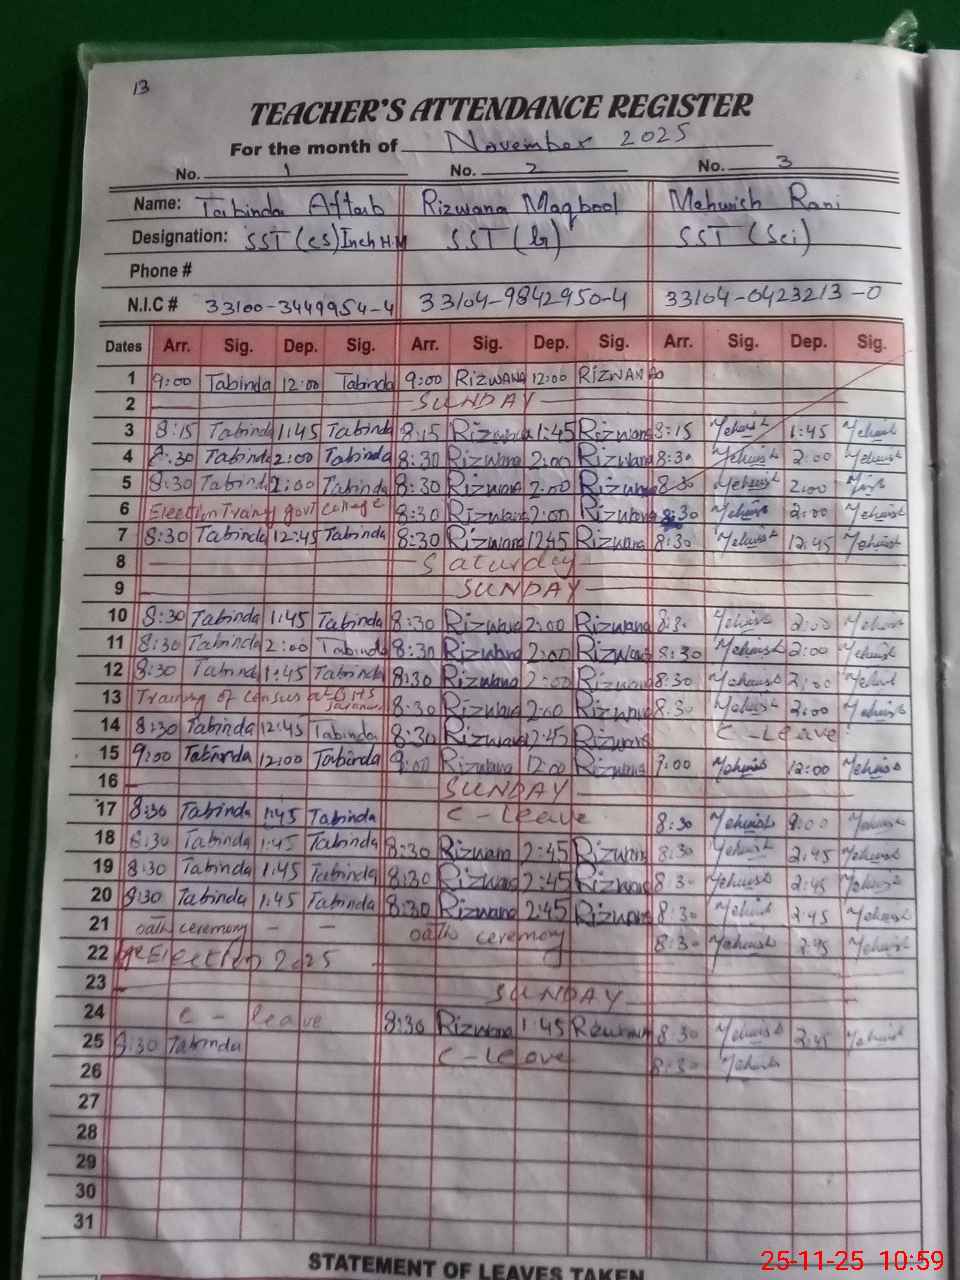 13
TEACHER'S ATTENDANCE REGISTER
For the month of November 2025
No. 1 No. 2 No. 3
Name: Tabinda Aftab Rizwana Maqbool Mehwish Rani
Designation: SST (CS) Inch H.M SST ( ) SST (Sci)
Phone #
N.I.C # 33100-3449954-4 33104-9842950-4 33104-0423213-0
Dates Arr. Sig. Dep. Sig. Arr. Sig. Dep. Sig. Arr. Sig. Dep. Sig.
1 9:00 Tabinda 12:00 Tabinda 9:00 RIZWANA 12:00 RIZWANA
2 SUNDAY
3 8:15 Tabinda 1:45 Tabinda 8:15 Rizwana 1:45 Rizwana 8:15 Mehwish 1:45 Mehwish
4 8:30 Tabinda 2:00 Tabinda 8:30 Rizwana 2:00 Rizwana 8:30 Mehwish 2:00 Mehwish
5 8:30 Tabinda 2:00 Tabinda 8:30 Rizwana 2:00 Rizwana 8:30 Mehwish 2:00
6 Election Training govt college 8:30 Rizwana 2:00 Rizwana 8:30 Mehwish 2:00 Mehwish
7 8:30 Tabinda 12:45 Tabinda 8:30 Rizwana 12:45 Rizwana 8:30 Mehwish 12:45 Mehwish
8 Saturday
9 SUNDAY
10 8:30 Tabinda 1:45 Tabinda 8:30 Rizwana 2:00 Rizwana 8:30 Mehwish 2:00 Mehwish
11 8:30 Tabinda 2:00 Tabinda 8:30 Rizwana 2:00 Rizwana 8:30 Mehwish 2:00 Mehwish
12 8:30 Tabinda 1:45 Tabinda 8:30 Rizwana 2:00 Rizwana 8:30 Mehwish 2:00 Mehwish
13 Training of census at GHS 8:30 Rizwana 2:00 Rizwana 8:30 Mehwish 2:00 Mehwish
14 8:30 Tabinda 12:45 Tabinda 8:30 Rizwana 2:45 Rizwana C-Leave
15 9:00 Tabinda 12:00 Tabinda 9:00 Rizwana 12:00 Rizwana 9:00 Mehwish 12:00 Mehwish
16 SUNDAY
17 8:30 Tabinda 1:45 Tabinda C-Leave 8:30 Mehwish 2:00 Mehwish
18 8:30 Tabinda 1:45 Tabinda 8:30 Rizwana 2:45 Rizwana 8:30 Mehwish 2:45 Mehwish
19 8:30 Tabinda 1:45 Tabinda 8:30 Rizwana 2:45 Rizwana 8:30 Mehwish 2:45 Mehwish
20 8:30 Tabinda 1:45 Tabinda 8:30 Rizwana 2:45 Rizwana 8:30 Mehwish 2:45 Mehwish
21 oath ceremony - - oath ceremony 8:30 Mehwish 2:45 Mehwish
22 Election 2025
23 SUNDAY
24 C-leave 8:30 Rizwana 1:45 Rizwana 8:30 Mehwish 2:45 Mehwish
25 8:30 Tabinda C-Leave 8:30 Mehwish
26
27
28
29
30
31
STATEMENT OF LEAVES TAKEN
25-11-25 10:59